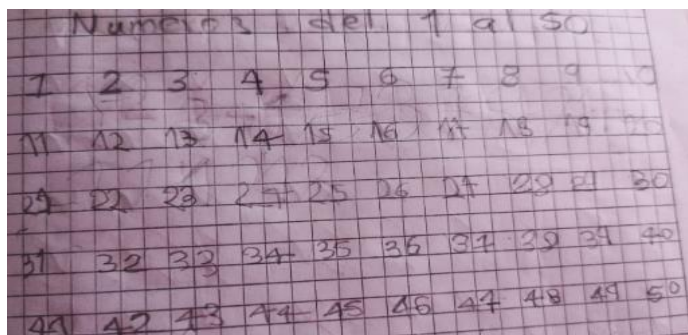 Numeros del 1 al 50
1 2 3 4 5 6 7 8 9 10
11 12 13 14 15 16 17 18 19 20
21 22 23 24 25 26 27 28 29 30
31 32 33 34 35 36 37 38 39 40
41 42 43 44 45 46 47 48 49 50